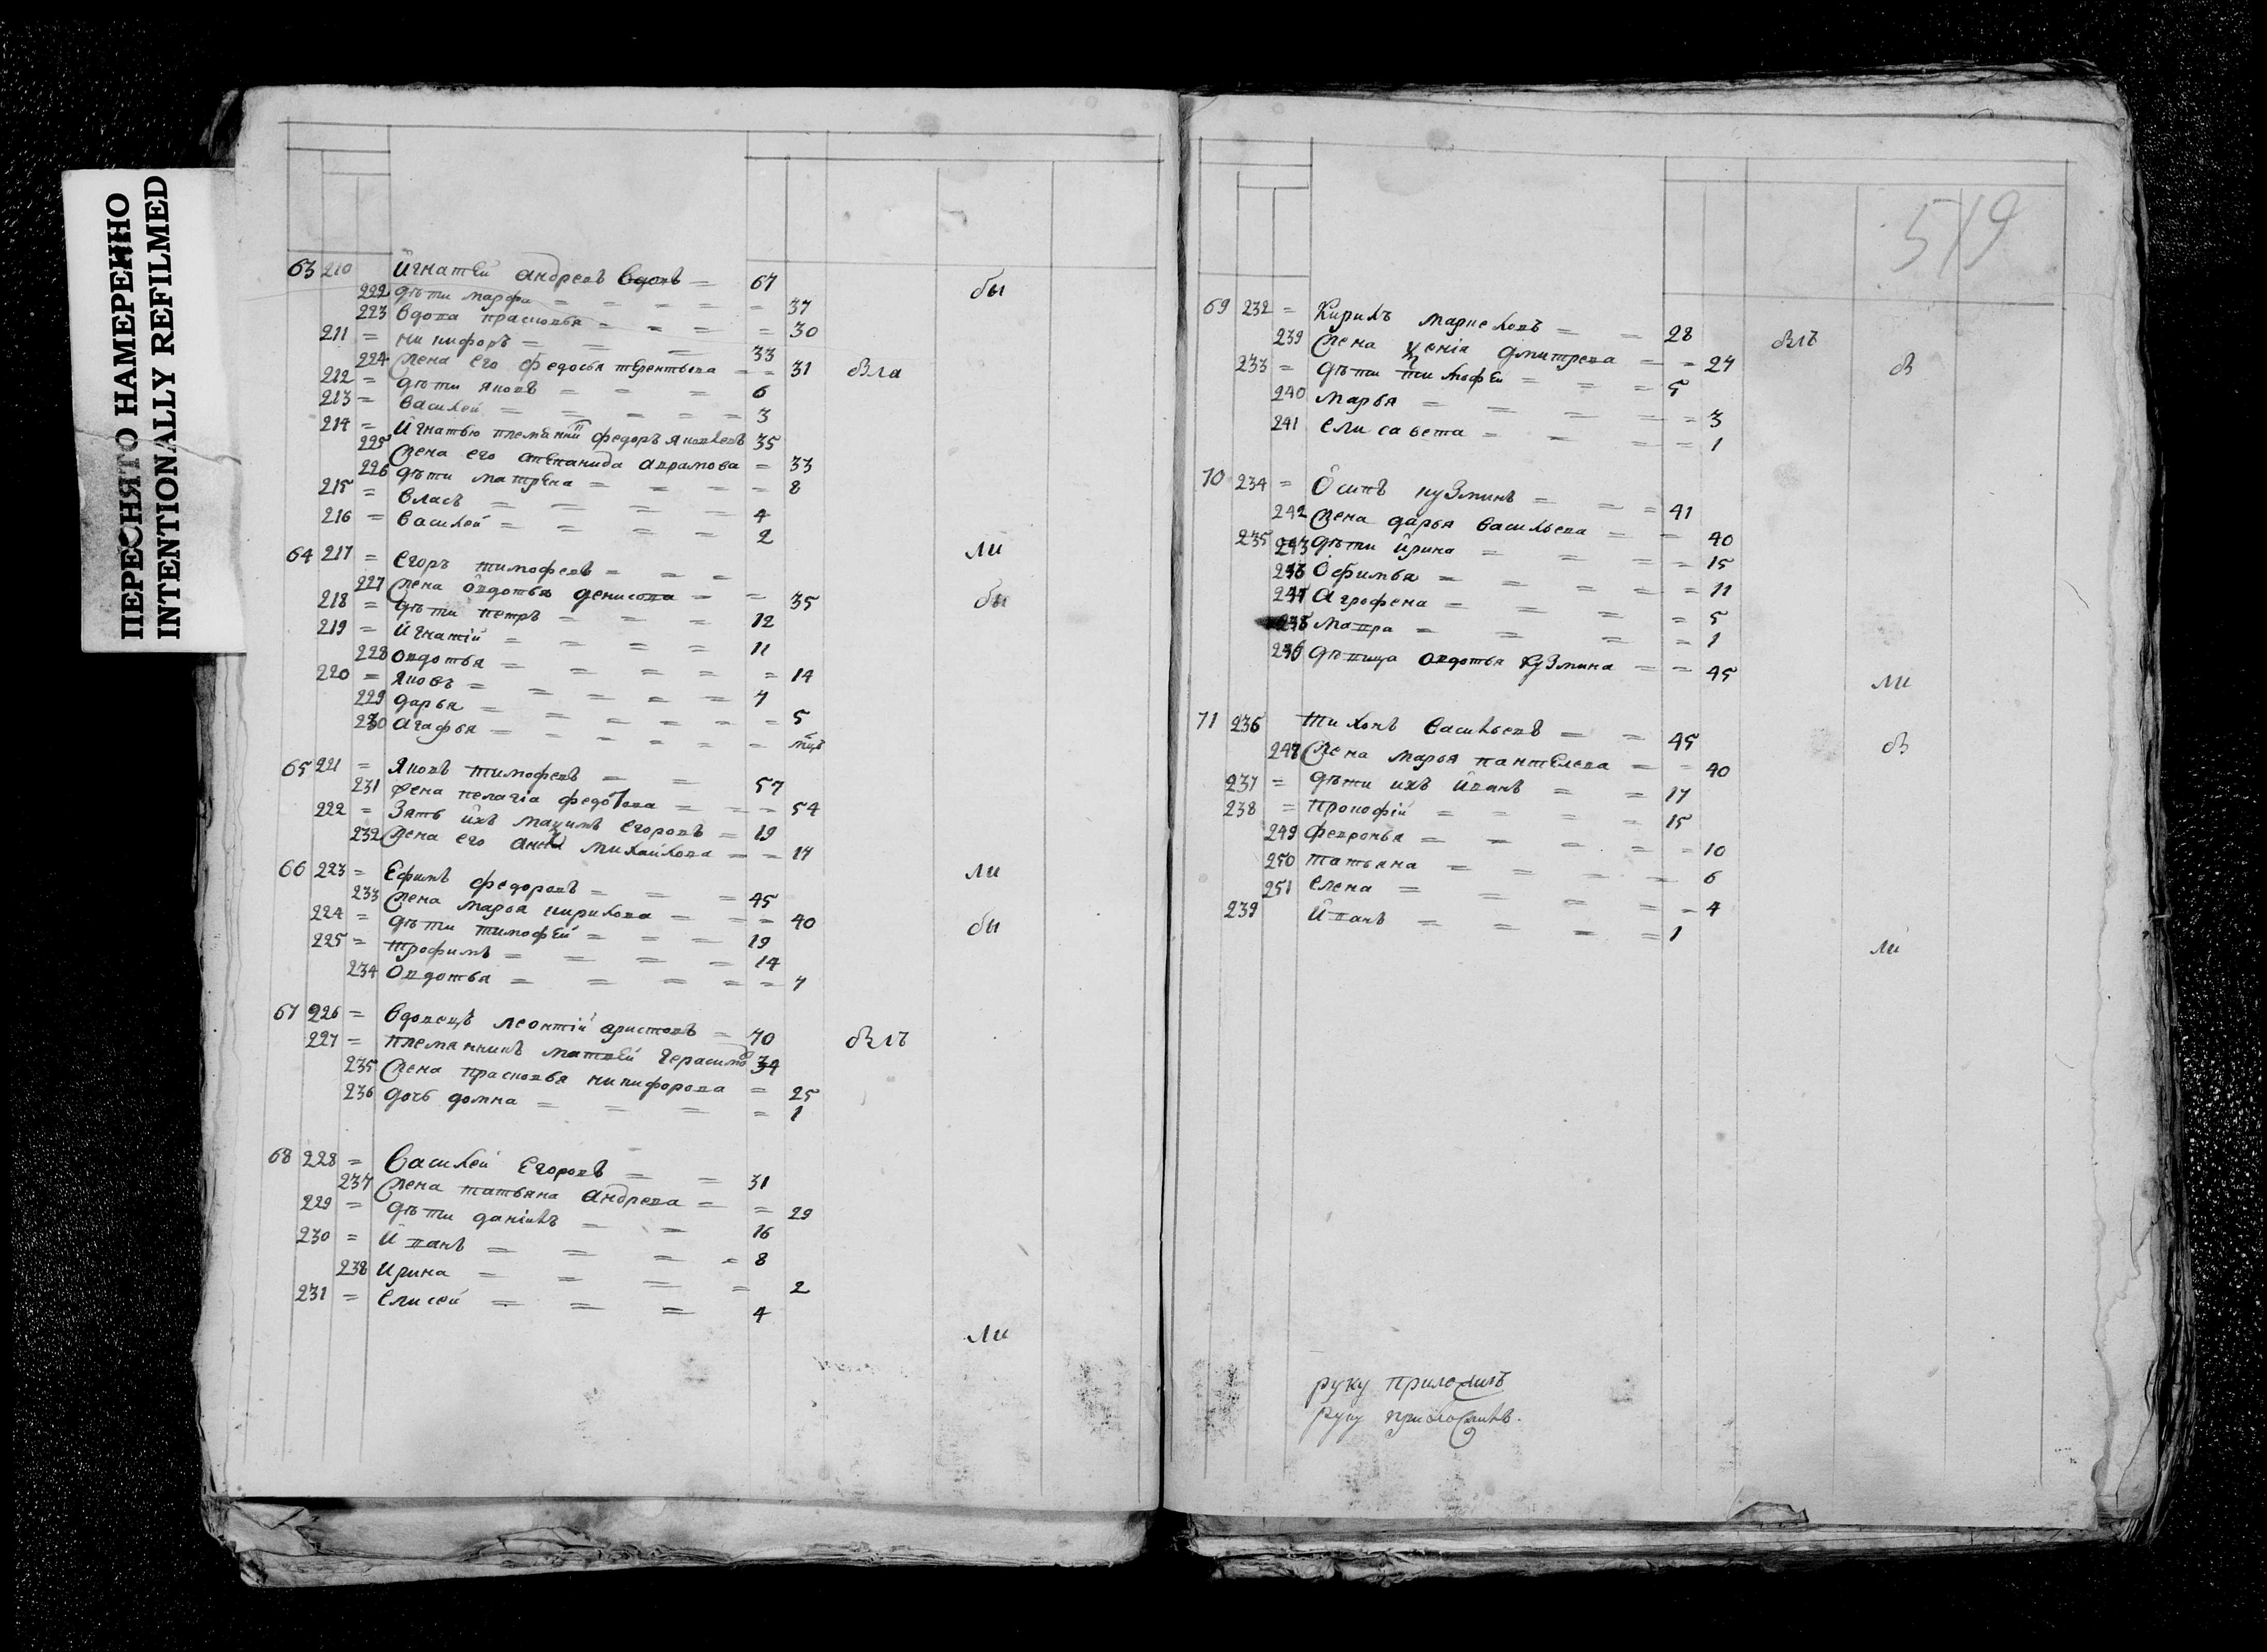 ПЕРЕСНЯТО НАМЕРЕННО
INTENTIONALLY REFILMED
63 210 Игнатей андреевъ вдовъ = 67 бы
222 дѣти марфа = 37
223 вдова прасковья = 30
211 = никифоръ = 33
224 жена его федосья терентьева = 31 былa
212 = дѣти яковъ = 6
213 = василей = 3
214 = Игнатью племянникъ федоръ яковлевъ 35
225 жена его степанида аврамова = 33
226 дѣти матрена = 8
215 = власъ = 4
216 = василей = 2
ли
64 217 = егоръ тимофеевъ =
227 жена овдотья денисова = 35 бы
218 = дѣти петръ = 12
219 = Игнатій = 11
228 овдотья = 14
220 = яковъ = 7
229 дарья = 5
230 агафья = мцъ
65 221 = яковъ тимофеевъ = 57
231 жена пелагіа федотова = 54
222 = зять ихъ маѯимъ егоровъ = 19
232 жена его анна михайлова = 17
ли
66 223 = Ефимъ федоровъ = 45
233 жена марья кирилова = 40 бы
224 = дѣти тимофей = 19
225 = трофимъ = 14
234 овдотья = 7
67 226 = вдовецъ леонтій аристовъ = 70 былъ
227 = племянникъ матвей герасимовъ 34
235 жена прасковья никифорова = 25
236 дочь домна = 1
68 228 = Василей Егоровъ = 31
237 жена татьяна андреева = 29
229 = дѣти данiилъ = 16
230 = Иванъ = 8
238 Ирина = 2
231 = елисей = 4
ли
519
69 232 = Кирилъ маркеловъ = 28 былъ
239 жена ѯеніа дмитрева = 27 бы
233 = дѣти тимофей = 5
240 марья = 3
241 елисавета = 1
70 234 = Осипъ кузминъ = 41
242 жена дарья васильева = 40
235 243 дѣти ирина = 15
Офимья = 11
агрофена = 5
мавра = 1
дѣвица овдотья кузмина = 45
ли
71 236 тихонъ васильевъ = 45 бы
248 жена марья пантелева = 40
237 = дѣти ихъ иванъ = 17
238 = прокофій = 15
249 февронья = 10
250 татьяна = 6
251 елена = 4
239 Иванъ = 1
ли
руку приложилъ
руку приложилъ.